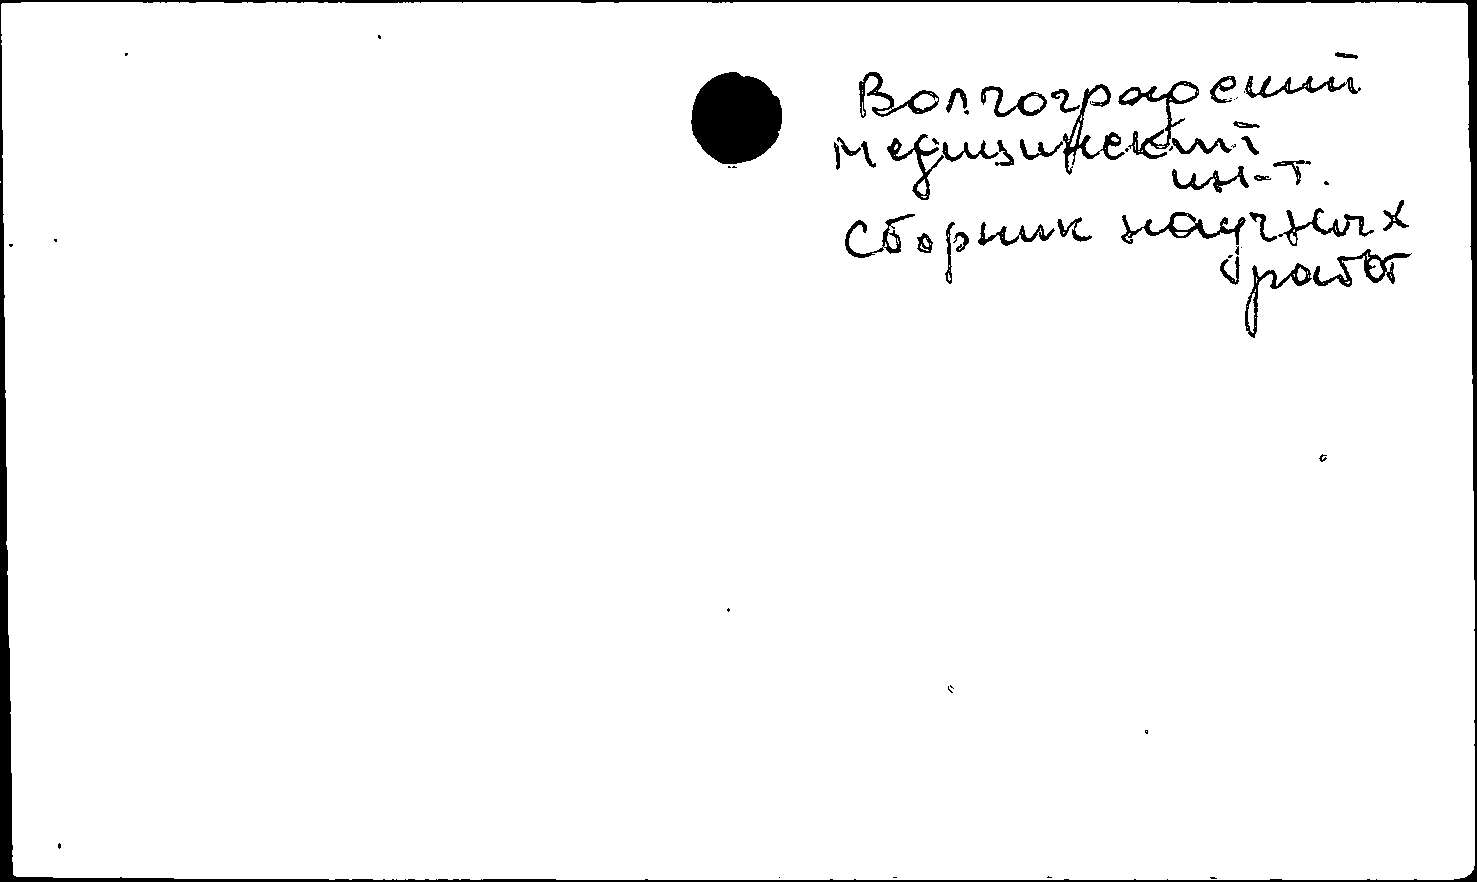 Волгоградский
медицинский
ин-т.
Сборник научных
работ